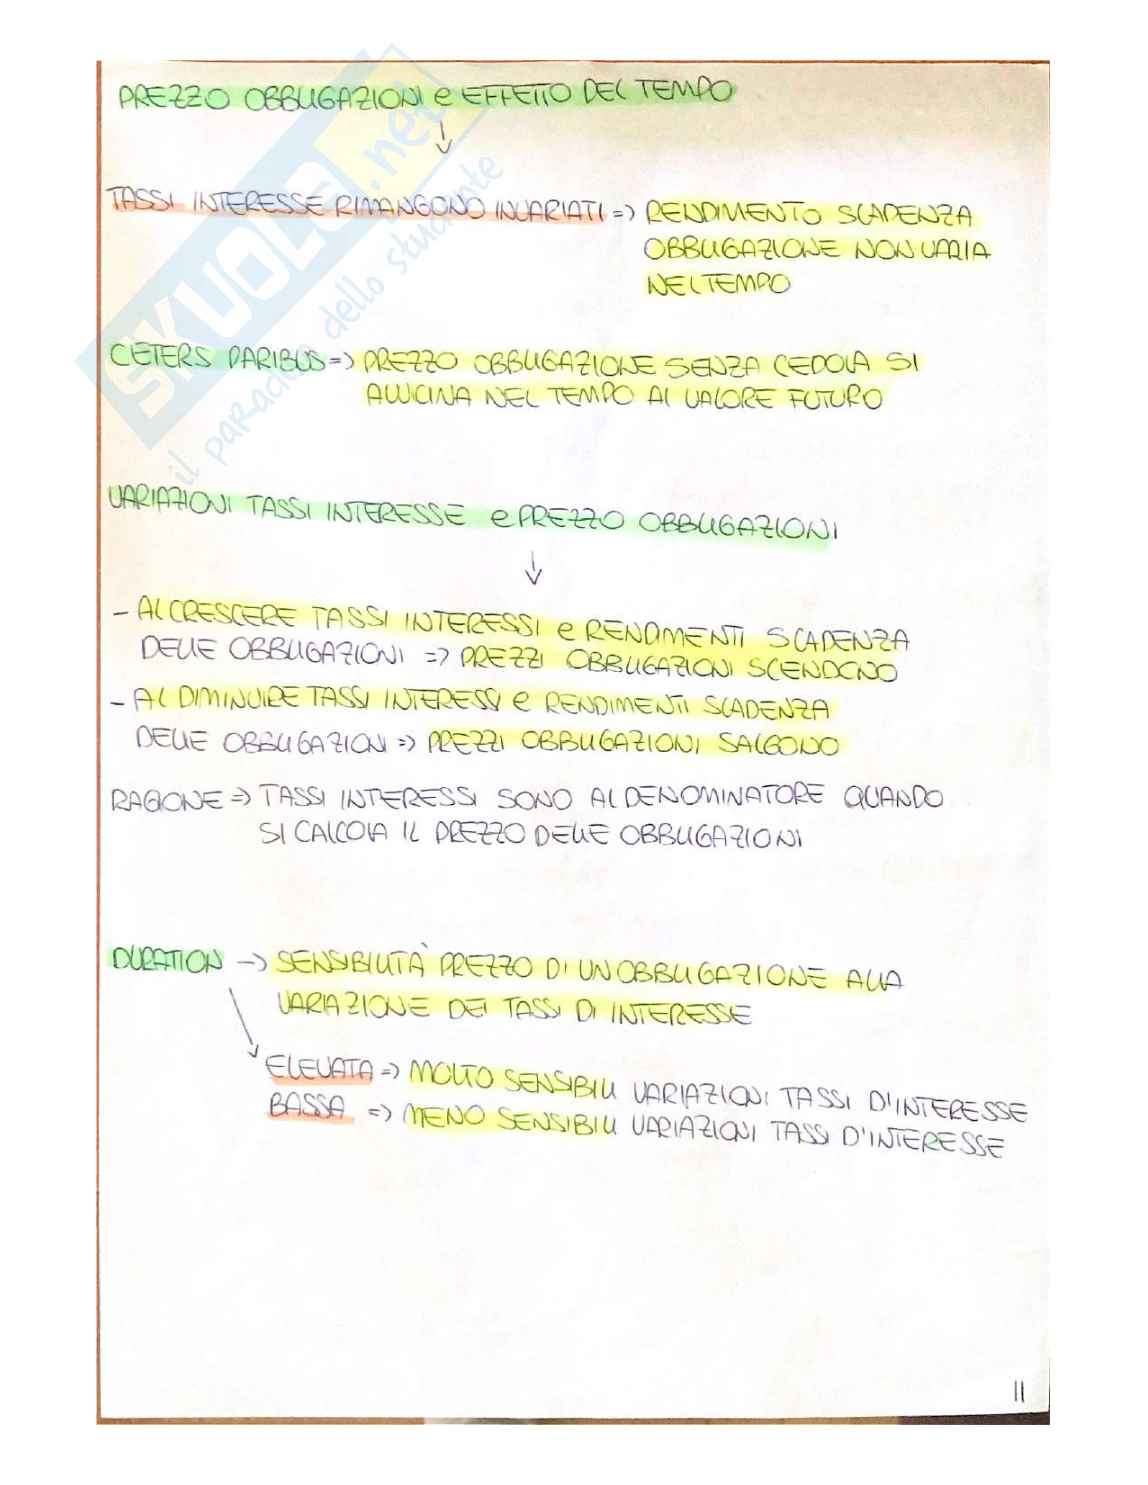 PREZZO OBBLIGAZIONI e EFFETTO DEL TEMPO
↓
TASSI INTERESSE RIMANGONO INVARIATI => RENDIMENTO SCADENZA
OBBLIGAZIONE NON VARIA
NEL TEMPO
CETERS PARIBUS => PREZZO OBBLIGAZIONE SENZA CEDOLA SI
AVVICINA NEL TEMPO AL VALORE FUTURO
VARIAZIONI TASSI INTERESSE e PREZZO OBBLIGAZIONI
↓
- AL CRESCERE TASSI INTERESSI e RENDIMENTI SCADENZA
DELLE OBBLIGAZIONI => PREZZI OBBLIGAZIONI SCENDONO
- AL DIMINUIRE TASSI INTERESSI e RENDIMENTI SCADENZA
DELLE OBBLIGAZIONI => PREZZI OBBLIGAZIONI SALGONO
RAGIONE => TASSI INTERESSI SONO AL DENOMINATORE QUANDO
SI CALCOLA IL PREZZO DELLE OBBLIGAZIONI
DURATION -> SENSIBILITÀ PREZZO DI UN OBBLIGAZIONE ALLA
VARIAZIONE DEI TASSI DI INTERESSE
ELEVATA => MOLTO SENSIBILI VARIAZIONI TASSI D'INTERESSE
BASSA => MENO SENSIBILI VARIAZIONI TASSI D'INTERESSE
11
SKUOLA.net
il paradiso dello studente